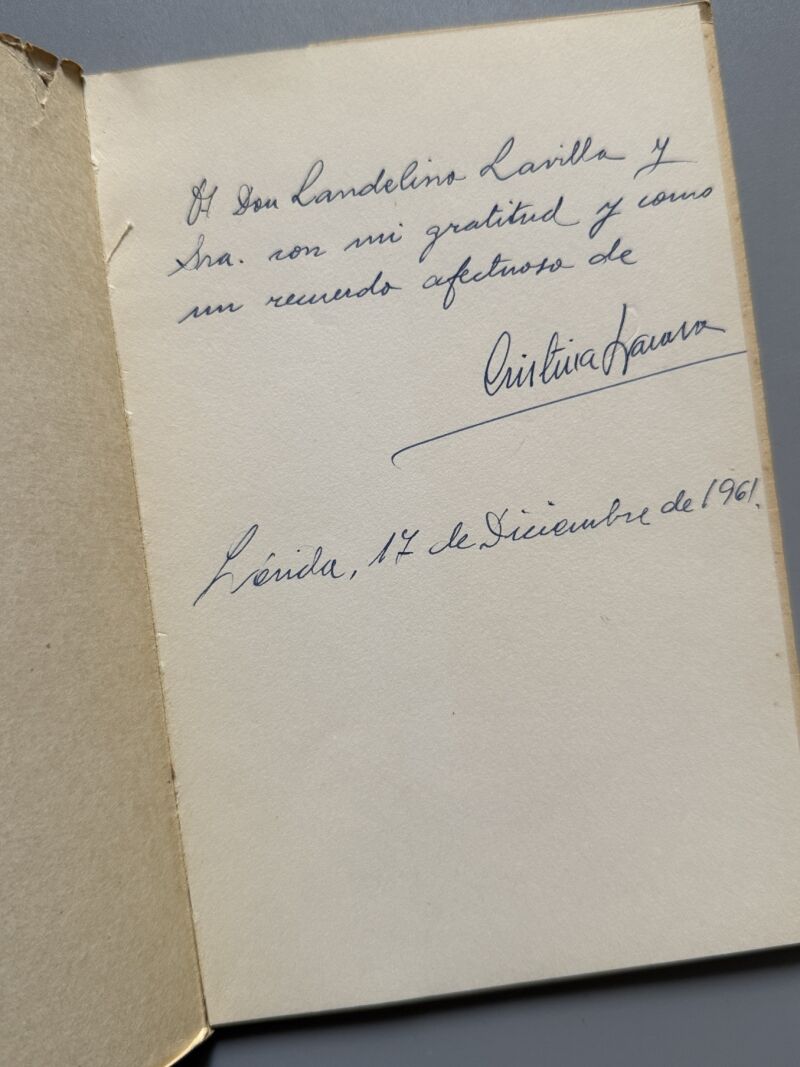 A Don Landelino Lavilla y
Sra. con mi gratitud y como
un recuerdo afectuoso de
Cristina Lacasa
Lérida, 17 de Diciembre de 1961.